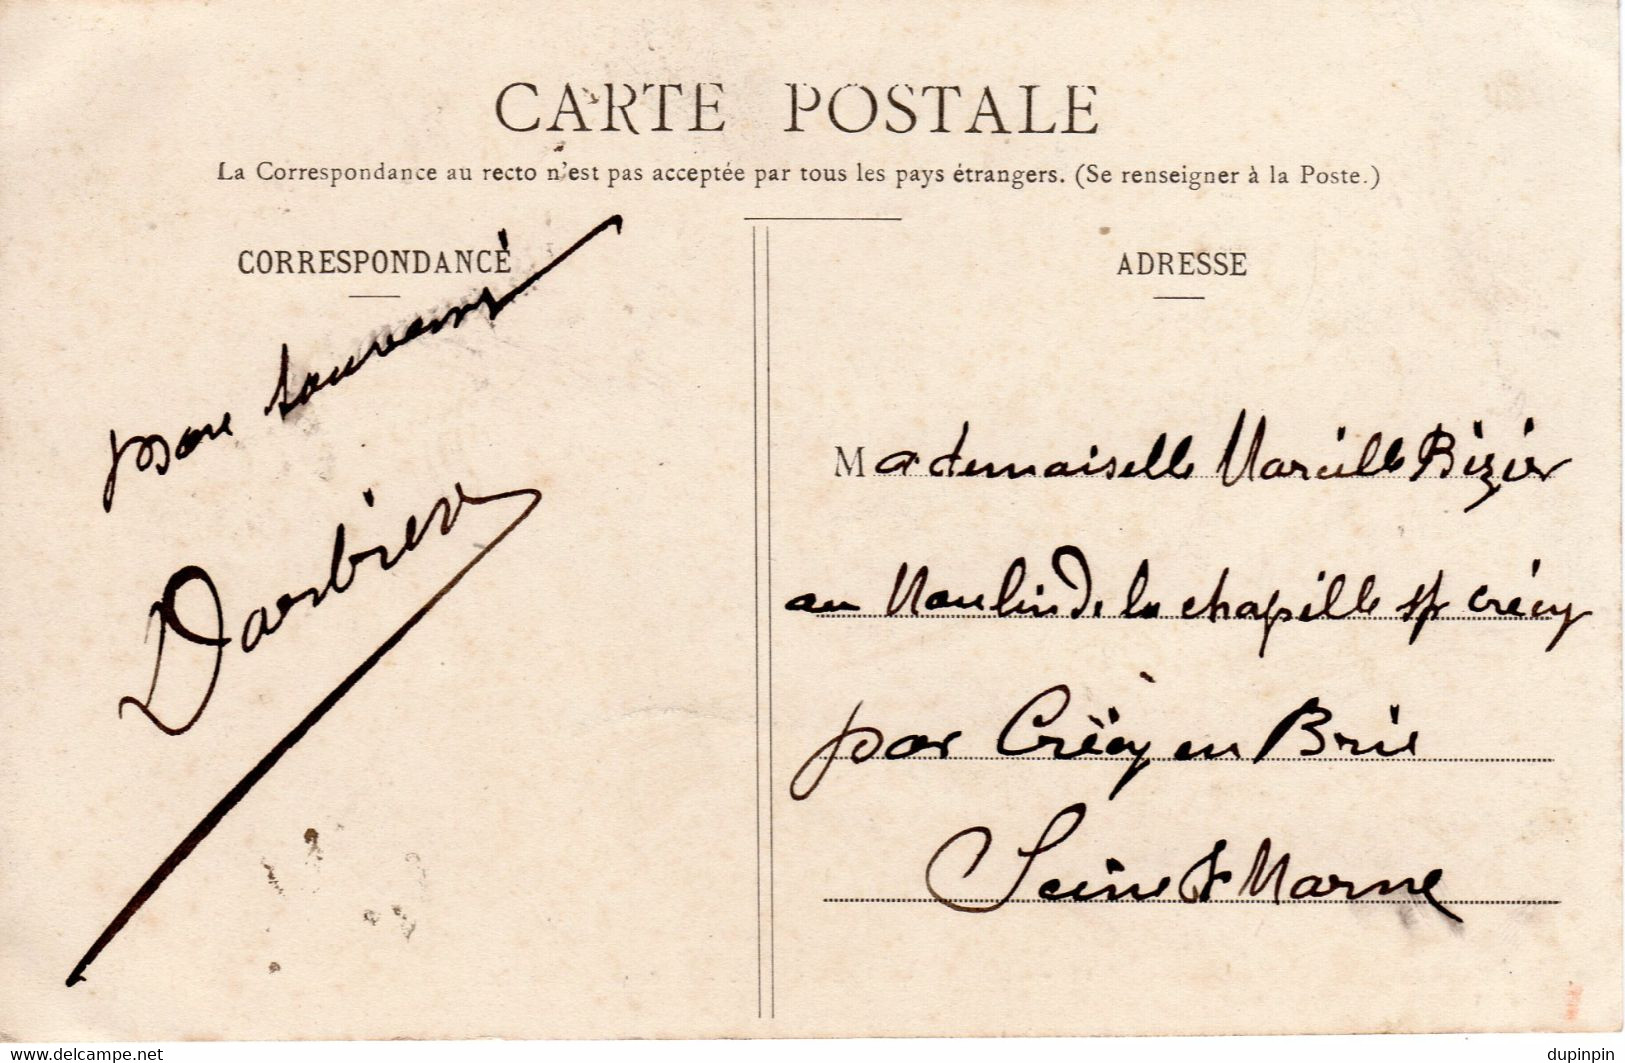 CARTE POSTALE
La Correspondance au recto n'est pas acceptée par tous les pays étrangers. (Se renseigner à la Poste.)
CORRESPONDANCE
Darbier
ADRESSE
Mademoiselle Bézier
au Moulin de la chapelle Crécy
par Crécy en Brie
Seine & Marne
www.delcampe.net
dupinpin